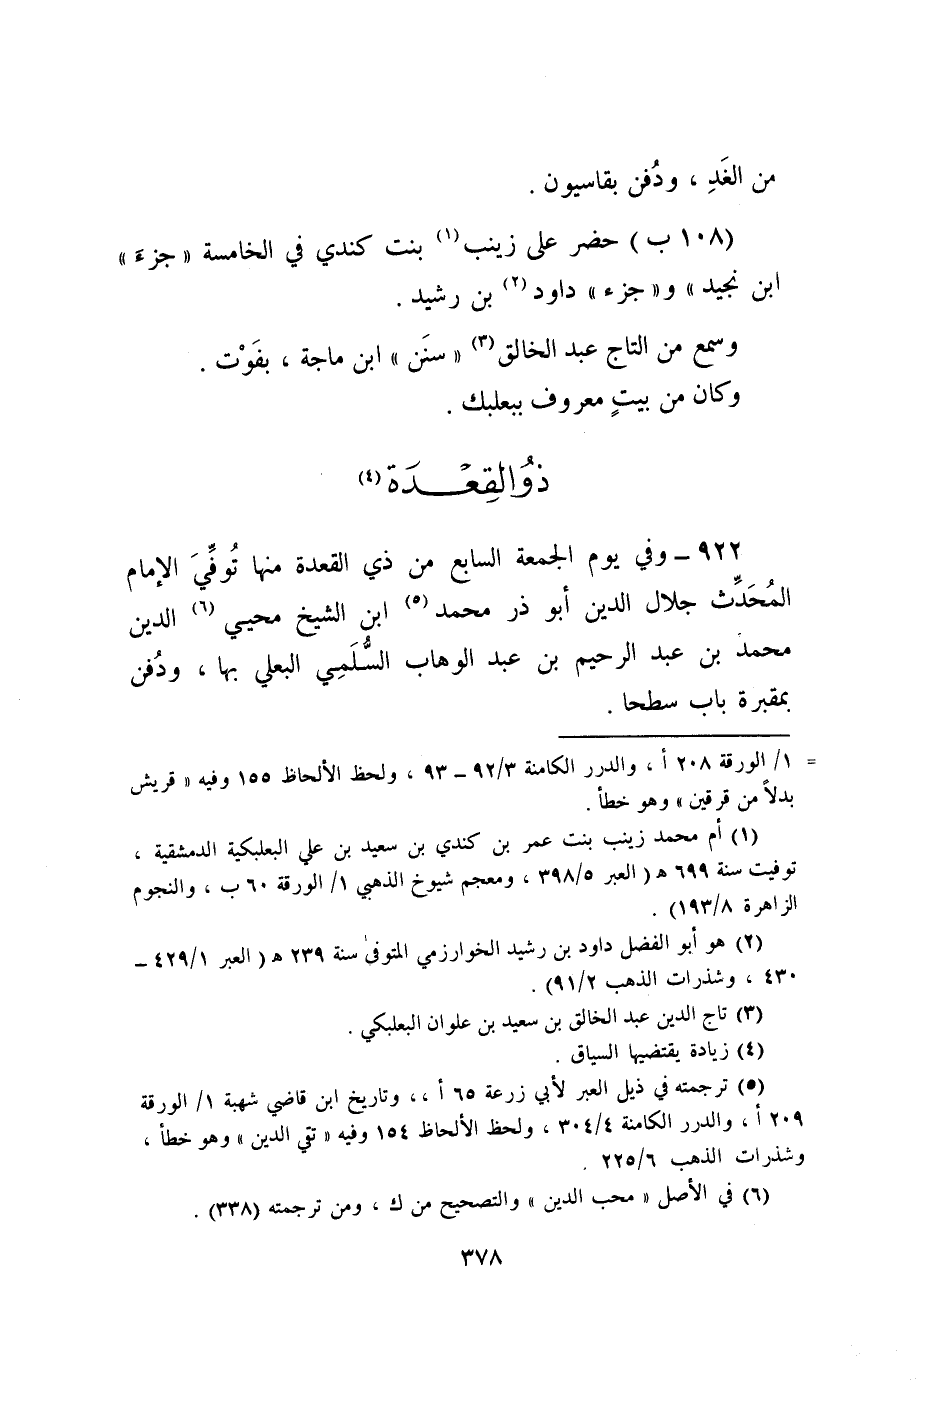 من الغَدِ ، ودُفن بقاسيون .
(١٠٨ ب) حضر على زينب(١) بنت كندي في الخامسة « جزءَ »
ابن نجيد » و« جزء » داود(٢) بن رشيد .
وسمع من التاج عبد الخالق(٣) « سنَن » ابن ماجة ، بفَوْت .
وكان من بيتٍ معروف ببعلبك .
ذُو القِعْدَة(٤)
٩٢٢ – وفي يوم الجمعة السابع من ذي القعدة منها تُوفِّيَ الإمام
المُحَدِّث جلال الدين أبو ذر محمد(٥) ابن الشيخ محيي(٦) الدين
محمد بن عبد الرحيم بن عبد الوهاب السُّلَمِي البعلي بها ، ودُفن
بمقبرة باب سطحا .
= ١/ الورقة ٢٠٨ أ ، والدرر الكامنة ٩٢/٣ – ٩٣ ، ولحظ الألحاظ ١٥٥ وفيه « قريش
بدلاً من قرقين » وهو خطأ .
(١) أم محمد زينب بنت عمر بن كندي بن سعيد بن علي البعلبكية الدمشقية ،
توفيت سنة ٦٩٩ ه ( العبر ٣٩٨/٥ ، ومعجم شيوخ الذهبي ١/ الورقة ٦٠ ب ، والنجوم
الزاهرة ١٩٣/٨) .
(٢) هو أبو الفضل داود بن رشيد الخوارزمي المتوفىٰ سنة ٢٣٩ ه ( العبر ٤٢٩/١ –
٤٣٠ ، وشذرات الذهب ٩١/٢) .
(٣) تاج الدين عبد الخالق بن سعيد بن علوان البعلبكي .
(٤) زيادة يقتضيها السياق .
(٥) ترجمته في ذيل العبر لأبي زرعة ٦٥ أ ،، وتاريخ ابن قاضي شهبة ١/ الورقة
٢٠٩ أ ، والدرر الكامنة ٣٠٤/٤ ، ولحظ الألحاظ ١٥٤ وفيه « تقي الدين » وهو خطأ ،
وشذرات الذهب ٢٢٥/٦ .
(٦) في الأصل « محب الدين » والتصحيح من ك ، ومن ترجمته (٣٣٨) .
٣٧٨